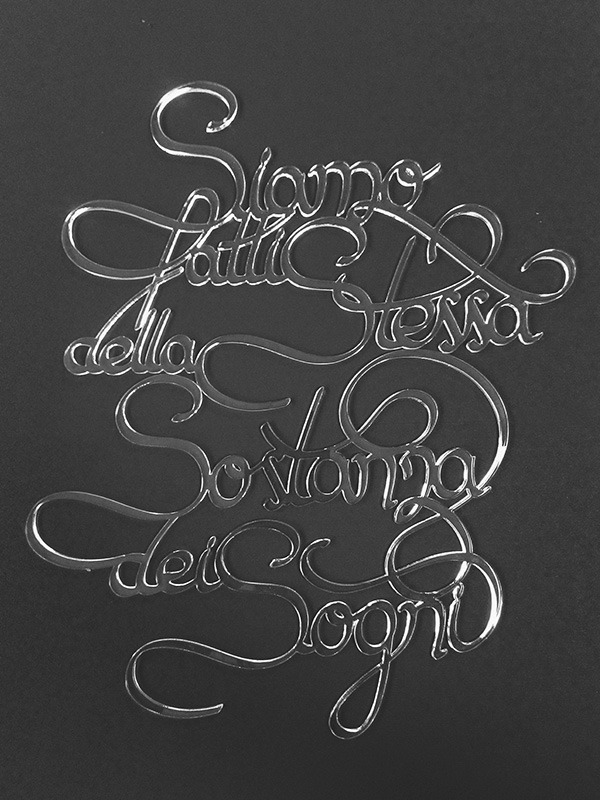 Siamo
fatti
della Stessa
Sostanza
dei Sogni